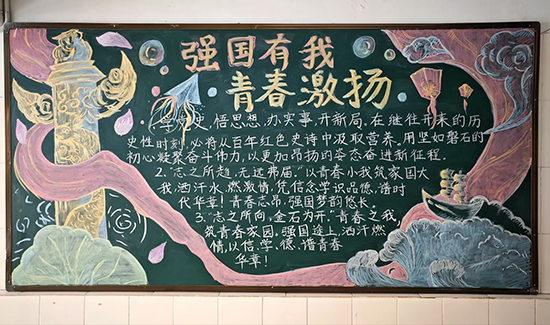 强国有我
青春激扬
1.学历史,悟思想,办实事,开新局。在继往开来的历
史性时刻,必将从百年红色史诗中汲取营养。用坚如磐石的
初心凝聚奋斗伟力,以更加昂扬的姿态奋进新征程。
2.“志之所趋,无远弗届。”以青春小我筑家国大
我,洒汗水,燃激情,凭信念学识品德,谱时
代华章!青春志昂,强国梦韵悠长。
3.“志之所向,金石为开”青春之我,
筑青春家园,强国途上,洒汗燃
情,以信、学、德、谱青春
华章!